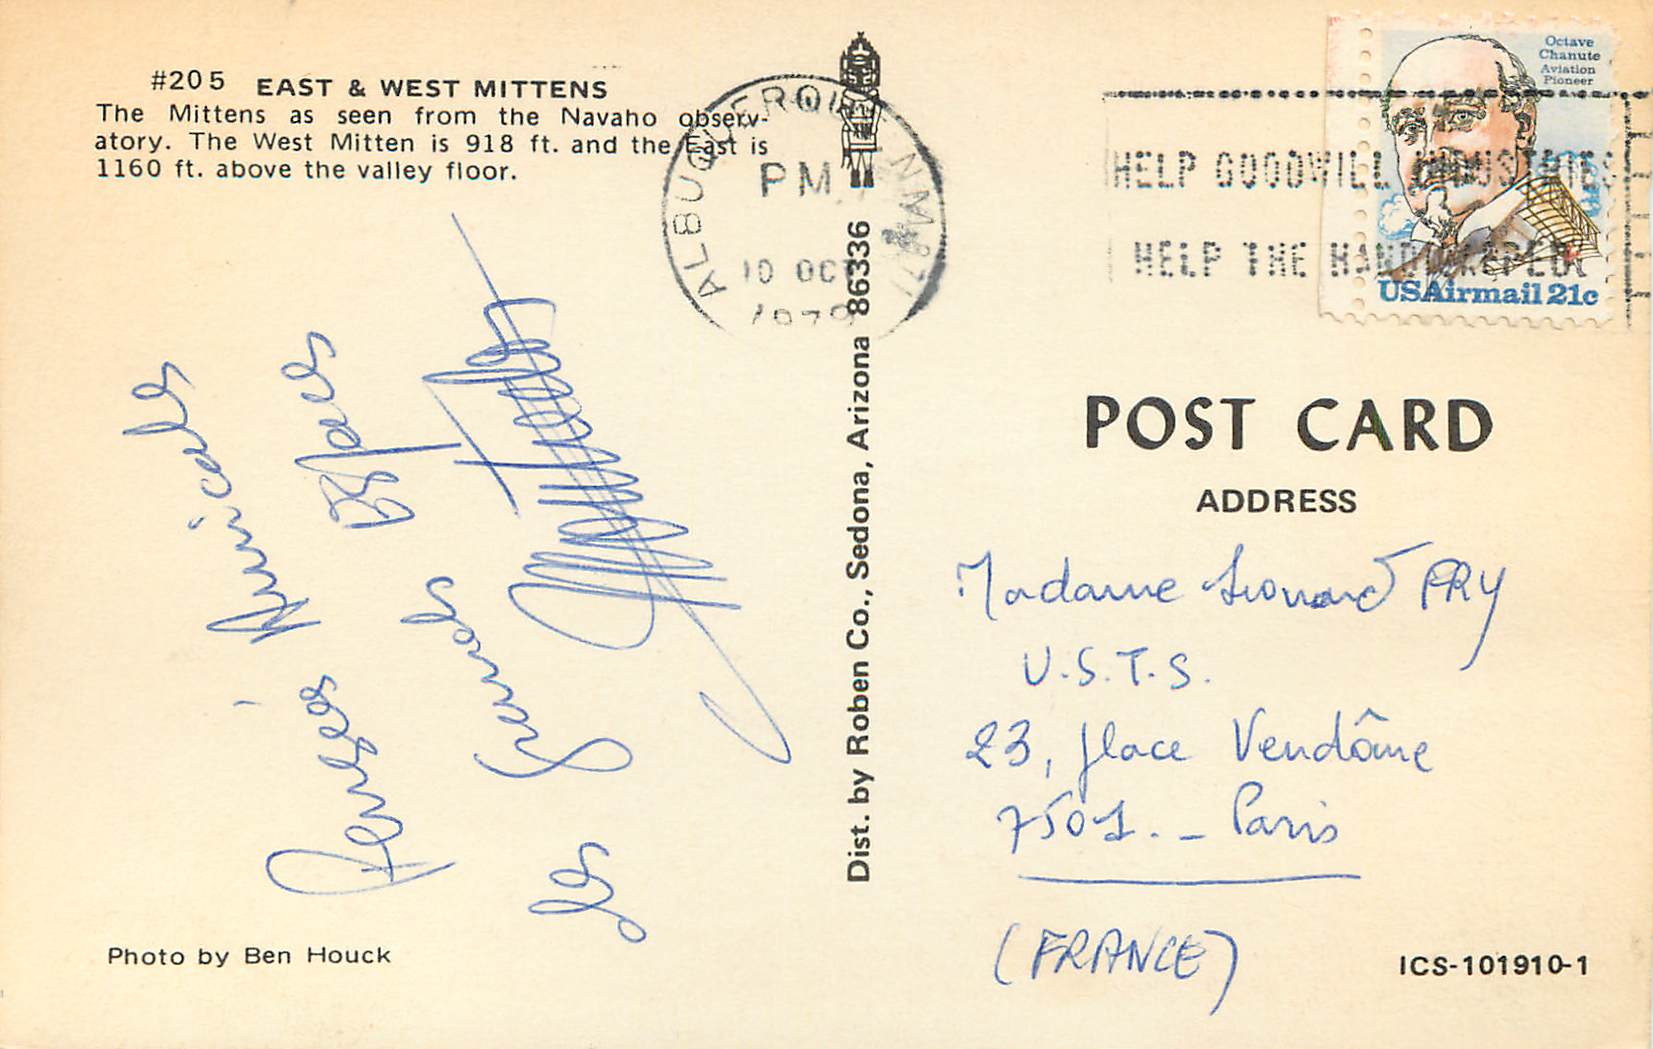 #205 EAST & WEST MITTENS
The Mittens as seen from the Navaho observ-
atory. The West Mitten is 918 ft. and the East is
1160 ft. above the valley floor.
ALBUQUERQUE NM 871
PM
10 OCT
1979
HELP GOODWILL INDUSTRIES
HELP THE HANDICAPPED
Octave
Chanute
Aviation
Pioneer
USAirmail 21c
Pensées Amicales
Les Grands Espaces
Dist. by Roben Co., Sedona, Arizona 86336
POST CARD
ADDRESS
Madame Leonard FRY
U.S.T.S.
23, place Vendôme
7501. _ Paris
(FRANCE)
Photo by Ben Houck
ICS-101910-1